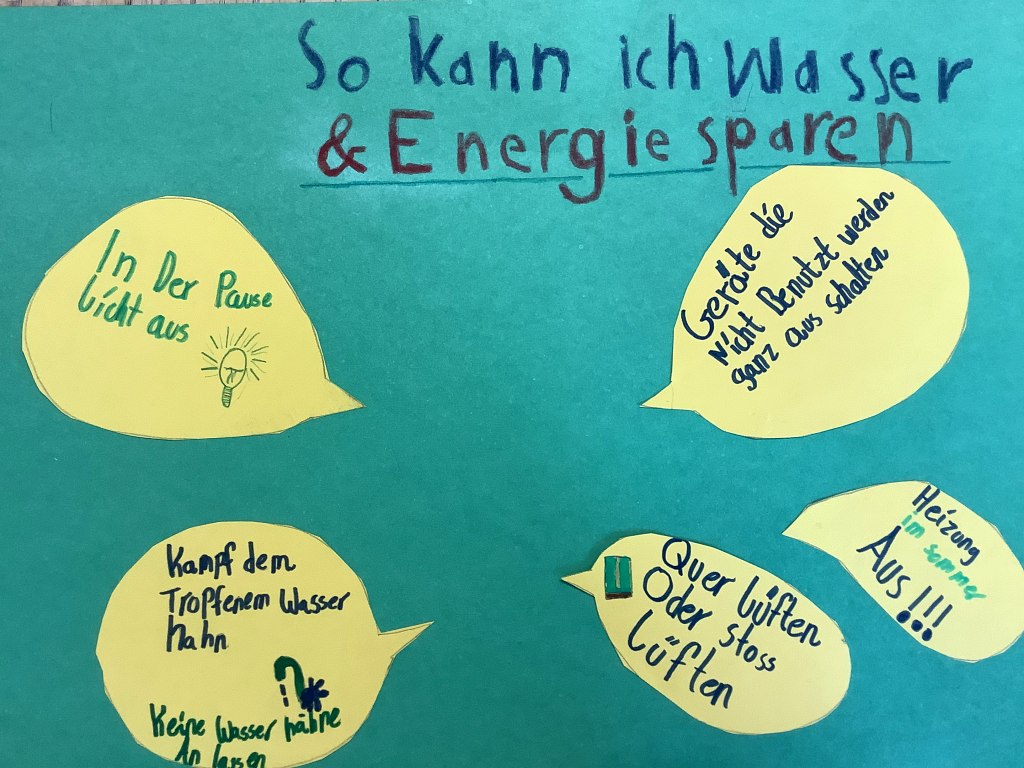 So kann ich Wasser
& Energie sparen
In Der Pause
Licht aus
Geräte die
Nicht Benutzt werden
ganz aus schalten
Kampf dem
Tropfenem Wasser
Hahn
Keine Wasser hähne
An lassen
Quer lüften
Oder stoss
lüften
Heizung
im sommer
Aus!!!